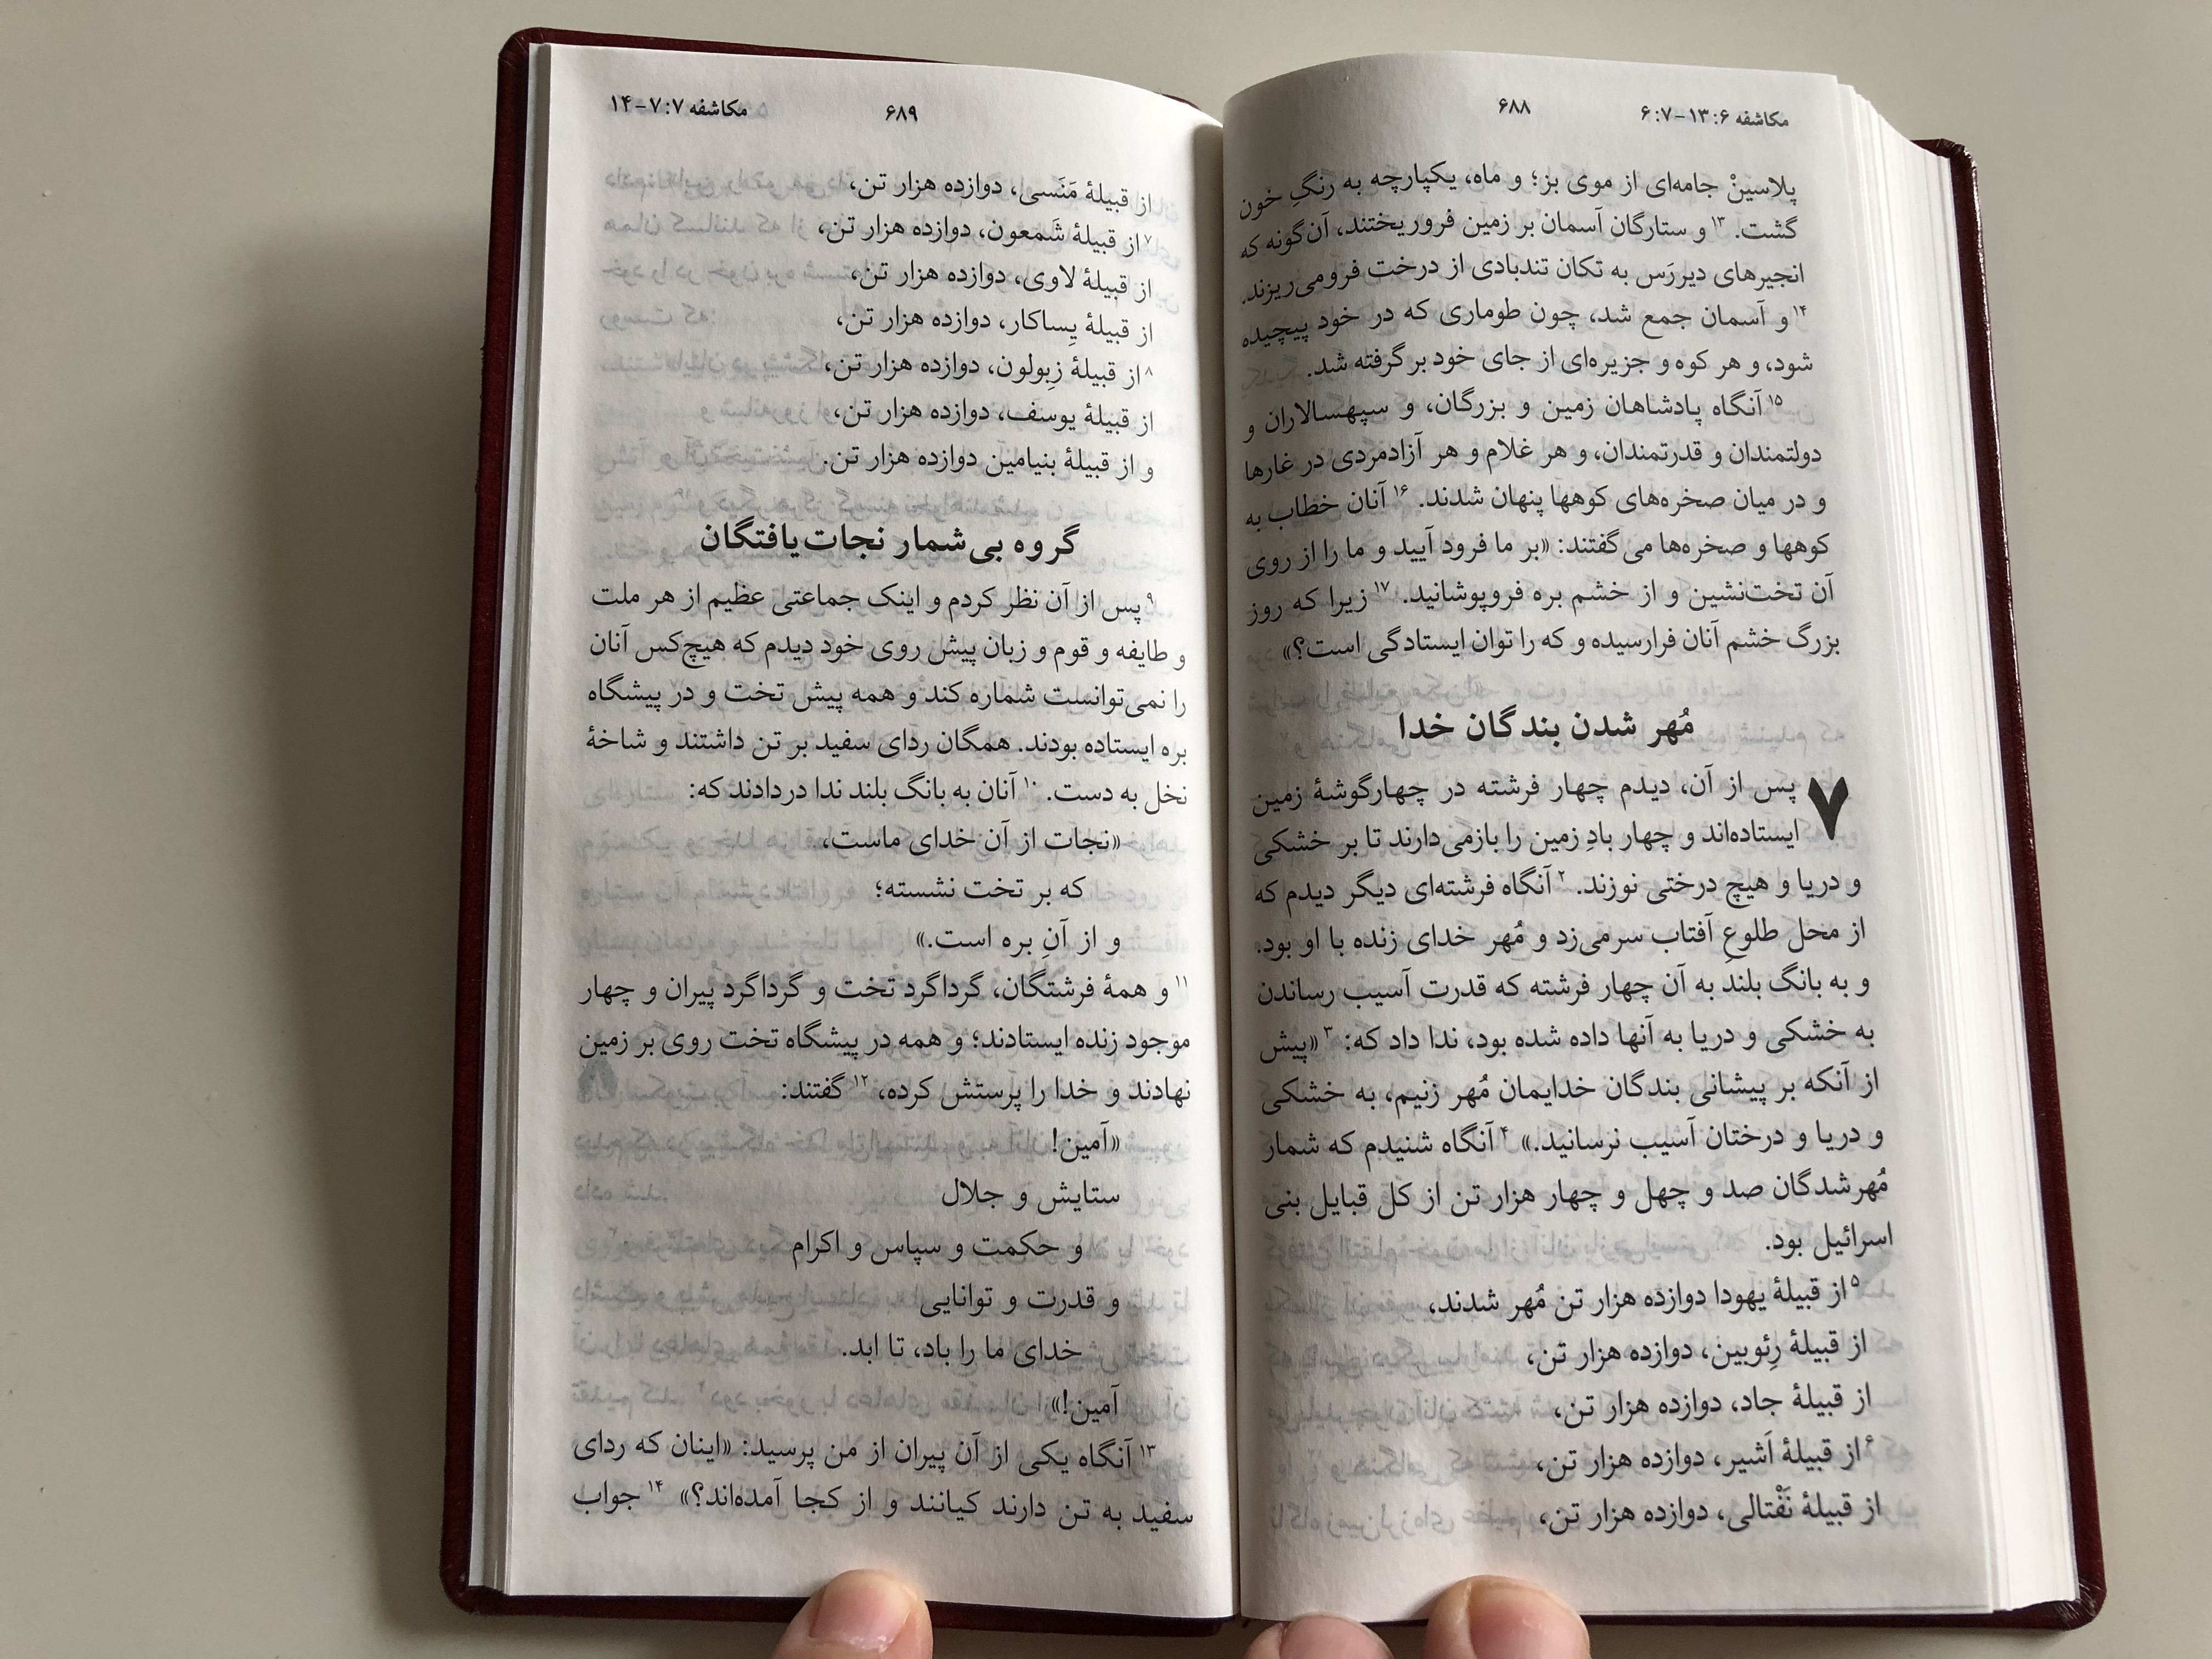 مکاشفه ۶:‏۱۳–۷:‏۶
۶۸۸
پلاسینْ جامه‌ای از موی بز؛ و ماه، یکپارچه به رنگِ خون
گشت. ۱۳ و ستارگان آسمان بر زمین فروریختند، آن‌گونه که
انجیرهای دیررَس به تکان تندبادی از درخت فرومی‌ریزند.
۱۴ و آسمان جمع شد، چون طوماری که در خود پیچیده
شود، و هر کوه و جزیره‌ای از جای خود برگرفته شد.
۱۵ آنگاه پادشاهان زمین و بزرگان، و سپهسالاران و
دولتمندان و قدرتمندان، و هر غلام و هر آزادمردی در غارها
و در میان صخره‌های کوهها پنهان شدند. ۱۶ آنان خطاب به
کوهها و صخره‌ها می‌گفتند: «بر ما فرود آیید و ما را از روی
آن تخت‌نشین و از خشم بره فروپوشانید. ۱۷ زیرا که روز
بزرگ خشم آنان فرارسیده و که را توان ایستادگی است؟»
مُهر شدن بندگان خدا
۷ پس از آن، دیدم چهار فرشته در چهارگوشهٔ زمین
ایستاده‌اند و چهار بادِ زمین را بازمی‌دارند تا بر خشکی
و دریا و هیچ درختی نوزند. ۲ آنگاه فرشته‌ای دیگر دیدم که
از محل طلوعِ آفتاب سرمی‌زد و مُهر خدای زنده با او بود.
و به بانگ بلند به آن چهار فرشته که قدرت آسیب رساندن
به خشکی و دریا به آنها داده شده بود، ندا داد که: ۳ «پیش
از آنکه بر پیشانی بندگان خدایمان مُهر زنیم، به خشکی
و دریا و درختان آسیب نرسانید.» ۴ آنگاه شنیدم که شمار
مُهرشدگان صد و چهل و چهار هزار تن از کل قبایل بنی
اسرائیل بود.
۵ از قبیلهٔ یهودا دوازده هزار تن مُهر شدند،
از قبیلهٔ رِئوبین، دوازده هزار تن،
از قبیلهٔ جاد، دوازده هزار تن،
۶ از قبیلهٔ اَشیر، دوازده هزار تن،
از قبیلهٔ نَفْتالی، دوازده هزار تن،
۶۸۹
مکاشفه ۷:‏۷–۱۴
از قبیلهٔ مَنَسی، دوازده هزار تن،
۷ از قبیلهٔ شَمعون، دوازده هزار تن،
از قبیلهٔ لاوی، دوازده هزار تن،
از قبیلهٔ یِساکار، دوازده هزار تن،
۸ از قبیلهٔ زِبولون، دوازده هزار تن،
از قبیلهٔ یوسف، دوازده هزار تن،
و از قبیلهٔ بنیامین دوازده هزار تن.
گروه بی‌شمار نجات‌یافتگان
۹ پس از آن نظر کردم و اینک جماعتی عظیم از هر ملت
و طایفه و قوم و زبان پیش روی خود دیدم که هیچ‌کس آنان
را نمی‌توانست شماره کند و همه پیش تخت و در پیشگاه
بره ایستاده بودند. همگان ردای سفید بر تن داشتند و شاخهٔ
نخل به دست. ۱۰ آنان به بانگ بلند ندا دردادند که:
«نجات از آن خدای ماست،
که بر تخت نشسته؛
و از آنِ بره است.»
۱۱ و همهٔ فرشتگان، گرداگرد تخت و گرداگرد پیران و چهار
موجود زنده ایستادند؛ و همه در پیشگاه تخت روی بر زمین
نهادند و خدا را پرستش کرده، ۱۲ گفتند:
«آمین!
ستایش و جلال
و حکمت و سپاس و اکرام
و قدرت و توانایی
خدای ما را باد، تا ابد.
آمین!»
۱۳ آنگاه یکی از آن پیران از من پرسید: «اینان که ردای
سفید به تن دارند کیانند و از کجا آمده‌اند؟» ۱۴ جواب